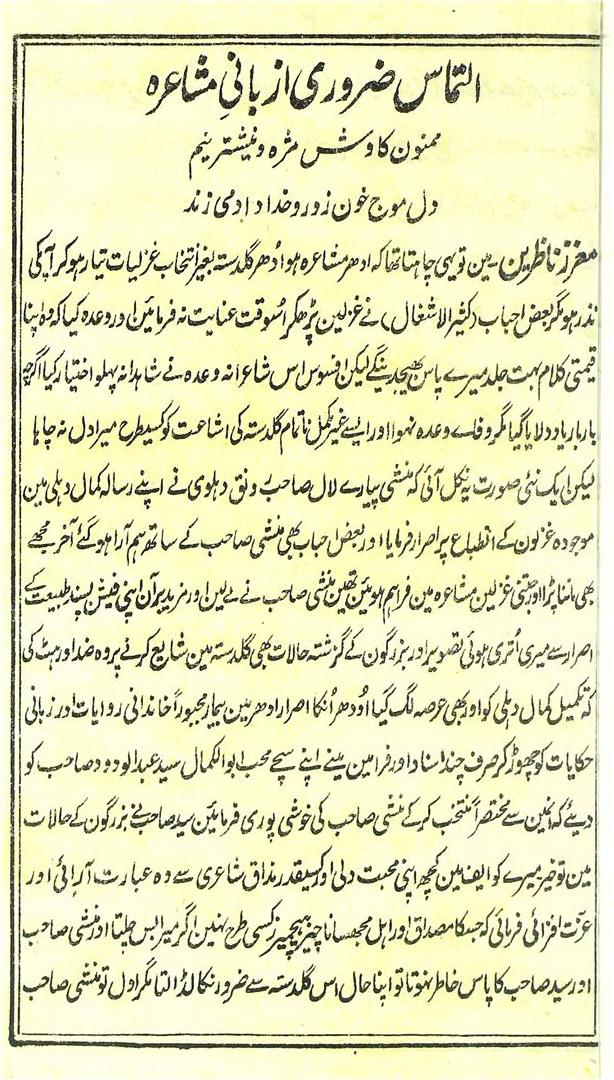 التماس ضروری از بانیِ مشاعرہ
ممنون کاوش مژہ و نیشتر نیم
دل موج خون زور و خداداد می زند
معزز ناظرین۔ مین تو یہی چاہتا تھا کہ ادھر مشاعرہ ہوا ودھر گلدستہ بغیر انتخاب غزلیات تیار ہو کر آپکی
نذر ہو مگر بعض احباب (کثیر الاشغال) نے غزلین پڑھکر اسوقت عنایت نہ فرمائین اور وعدہ کیا کہ وہ اپنا
قیمتی کلام بہت جلد میرے پاس بھیجدینگے لیکن افسوس اس شاعرانہ وعدہ نے شاہدانہ پہلو اختیار کیا اگرچہ
بار بار یاد دلایا گیا مگر وفاے وعدہ نہوا اور ایسے غیر مکمل ناتمام گلدستہ کی اشاعت کو کسیطرح میرا دل نہ چاہا
لیکن ایک نئی صورت یہ نکل آئی کہ منشی پیارے لال صاحب رونق دہلوی نے اپنے رسالہ کمال دہلی مین
موجودہ غزلون کے انطباع پر اصرار فرمایا اور بعض احباب بھی منشی صاحب کے ساتھ ہم آرا ہو گئے آخر مجھے
بھی ماننا پڑا اور جتنی غزلین مشاعرہ مین فراہم ہوئین تھین منشی صاحب نے لے لین اور مزید برآن اپنی فیشن پسند طبیعت کے
اصرار سے میری اُتری ہوئی تصویر اور بزرگون کے گزشتہ حالات بھی گلدستہ مین شایع کرنے پر وہ ضد اور ہٹ کی
کہ تکمیل کمال دہلی کو اور بھی عرصہ لگ گیا اودھر اُنکا اصرار ادھر مین بیمار مجبوراً خاندانی روایات اور زبانی
حکایات کو چھوڑ کر صرف چند اسناد اور فرامین مینے اپنے سچے محب ابوالکمال سید عبدالودود صاحب کو
دیئے کہ انمین سے مختصراً منتخب کرکے منشی صاحب کی خوشی پوری فرمائین سید صاحب نے بزرگون کے حالات
مین تو خیر میرے کوایف مین کچھ اپنی محبت دلی اور کسیقدر مذاق شاعری سے وہ عبارت آرائی اور
عزت افزائی فرمائی کہ جسکا مصداق اور اہل مجھسا ناچیز ہیچمیرز کسی طرح نہین اگر میرا بس چلتا اور منشی صاحب
اور سید صاحب کا پاس خاطر نہوتا تو اپنا حال اس گلدستہ سے ضرور نکالڈالتا مگر اول تو منشی صاحب